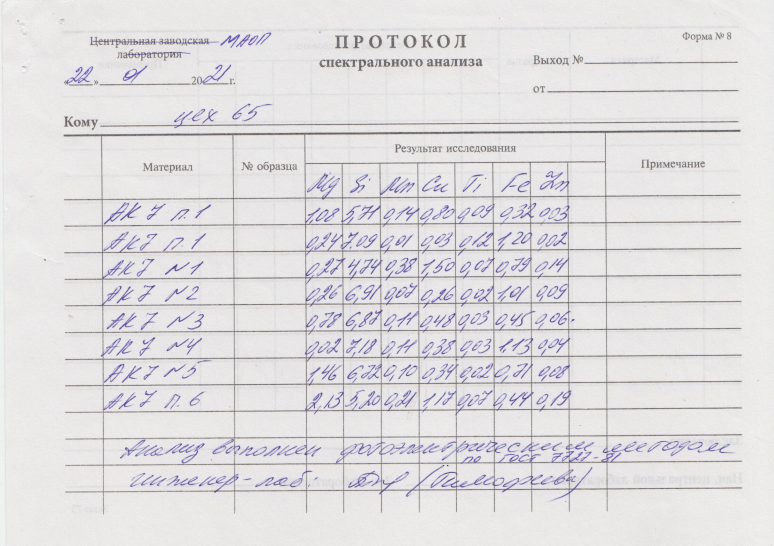 Центральная заводская МАОП
лаборатория
ПРОТОКОЛ
спектрального анализа
Форма № 8
Выход №
«22» 01 2021 г.
от
Кому цех 65
Материал № образца Результат исследования Примечание
Mg Si Mn Cu Ti Fe Zn
АК7 п.1 1,08 5,71 0,14 0,80 0,09 0,32 0,03
АК7 п.1 0,24 7.09 0,01 0,03 0,12 1,20 0,02
АК7 N1 0,27 4,74 0,38 1,50 0,07 0,79 0,14
АК7 N2 0,26 6,91 0,07 0,26 0,02 1,01 0,09
АК7 N3 0,78 6,87 0,11 0,48 0,03 0,45 0,06.
АК7 N4 0,02 7,18 0,11 0,38 0,03 1.13 0,04
АК7 N5 1,46 6,72 0,10 0,34 0,02 0,71 0,08
АК7 п.6 2,13 5,20 0,21 1,17 0,07 0,44 0,19
Анализ выполнен фотоэлектрическим методом
по ГОСТ
инженер-лаб: (Тимофеева)